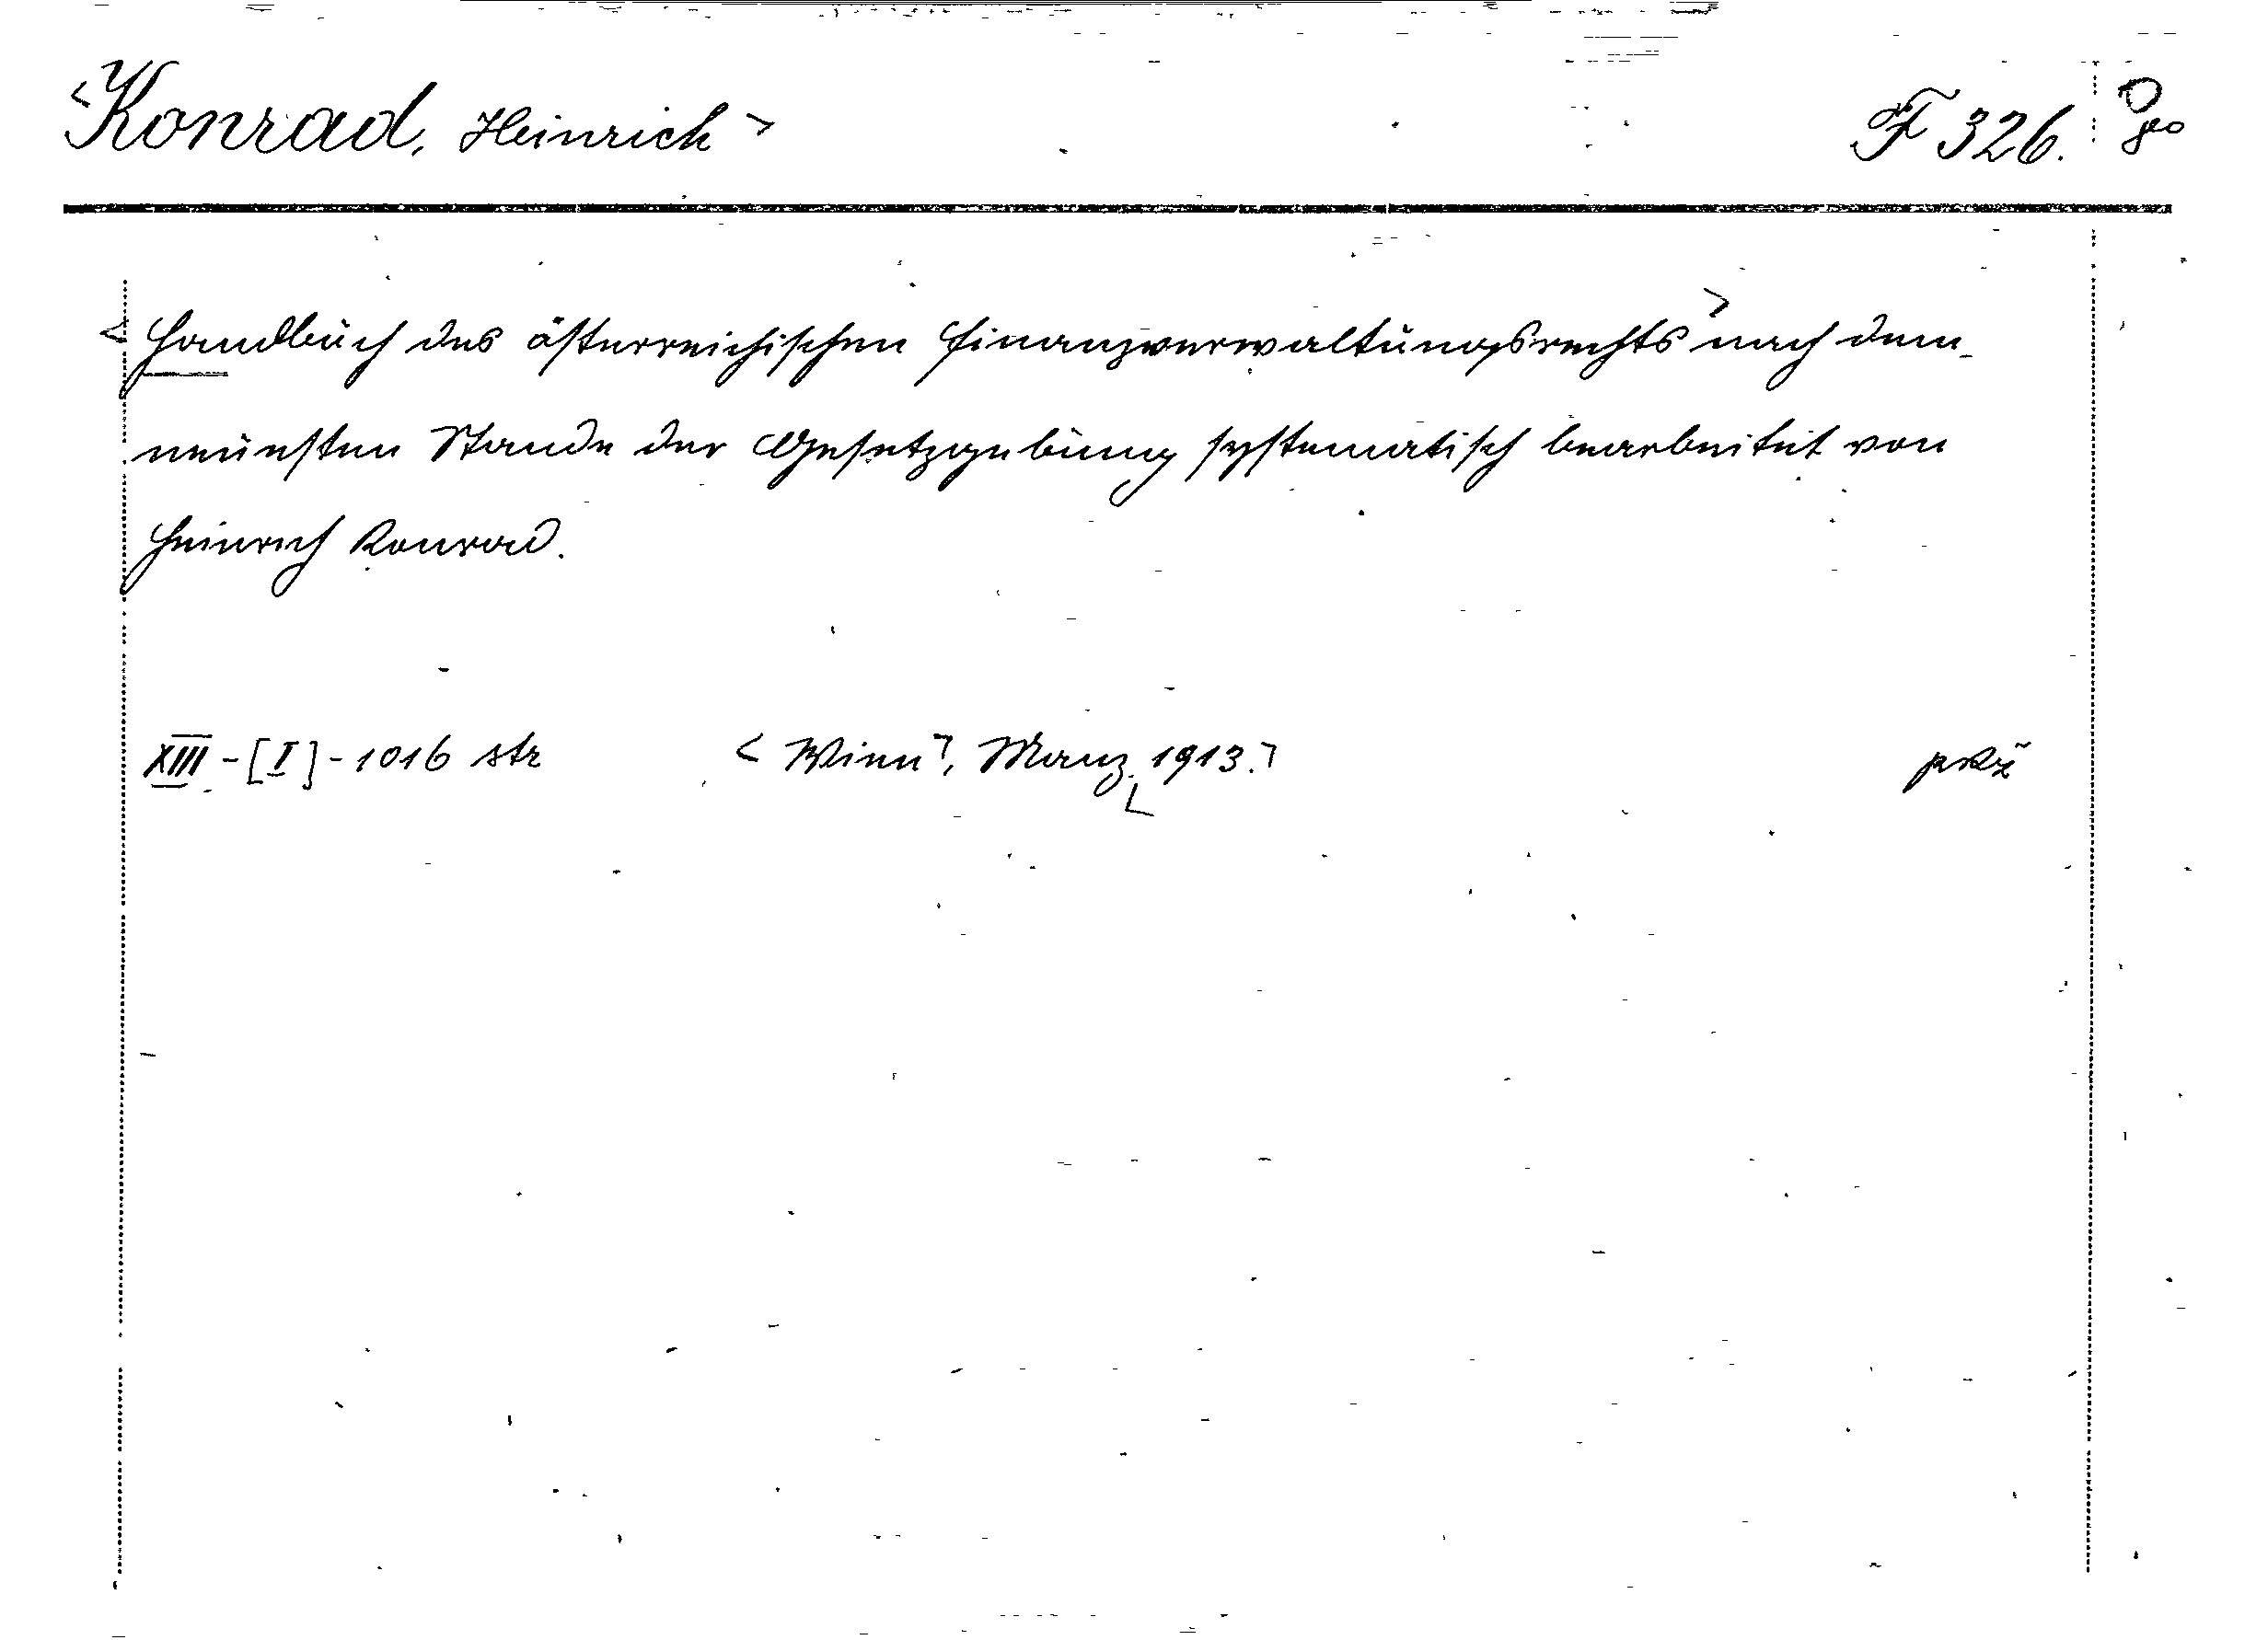 <Konrad, Heinrich> F 326.
<Handbuch des österreichischen Finanzverwaltungsrechts> nach dem
neuesten Stande der Gesetzgebung systematisch bearbeitet von
Heinrich Konrad.
XIII-[I]-1016 str <Wien>, Manz. <1913.>